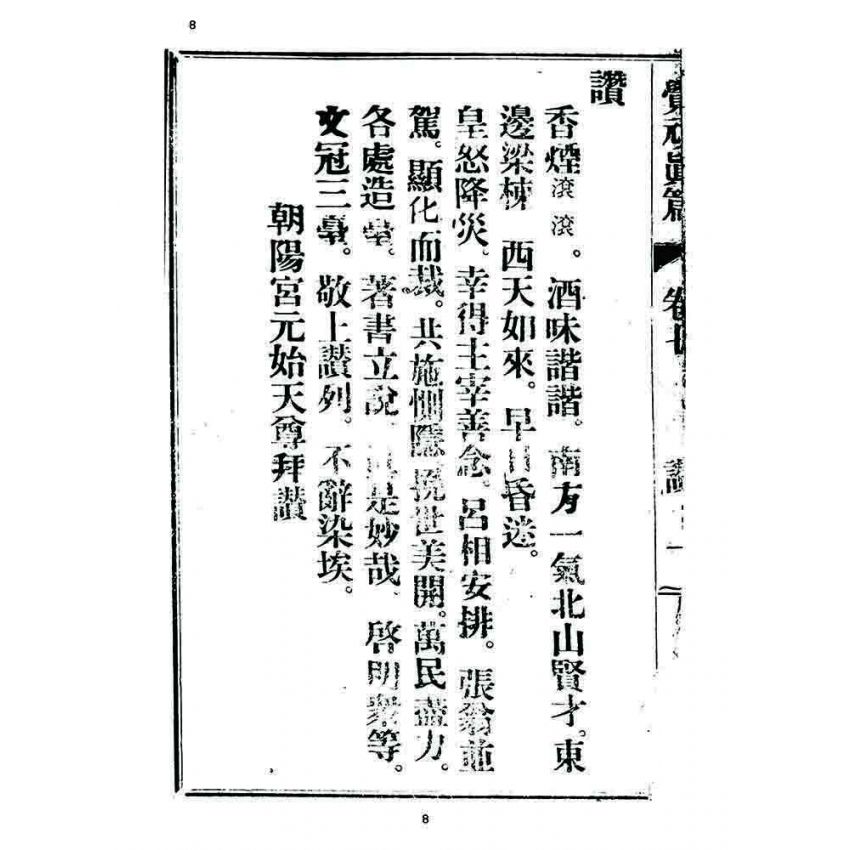 8
覺 眞篇
卷
讚
一
讚
香煙滾滾。酒味諧諧。南方一氣北山賢才。東
邊梁棟 西天如來。早 昏迷。
皇怒降災。幸得主宰善念。呂相安排。張翁並
駕。顯化而裁。共施惻隱 挽世美開。萬民盡力。
各處造 。著書立說。 是妙哉。啓明 等。
文冠三 。敬上讚列。不辭染埃。
朝陽宮元始天尊拜讚
8